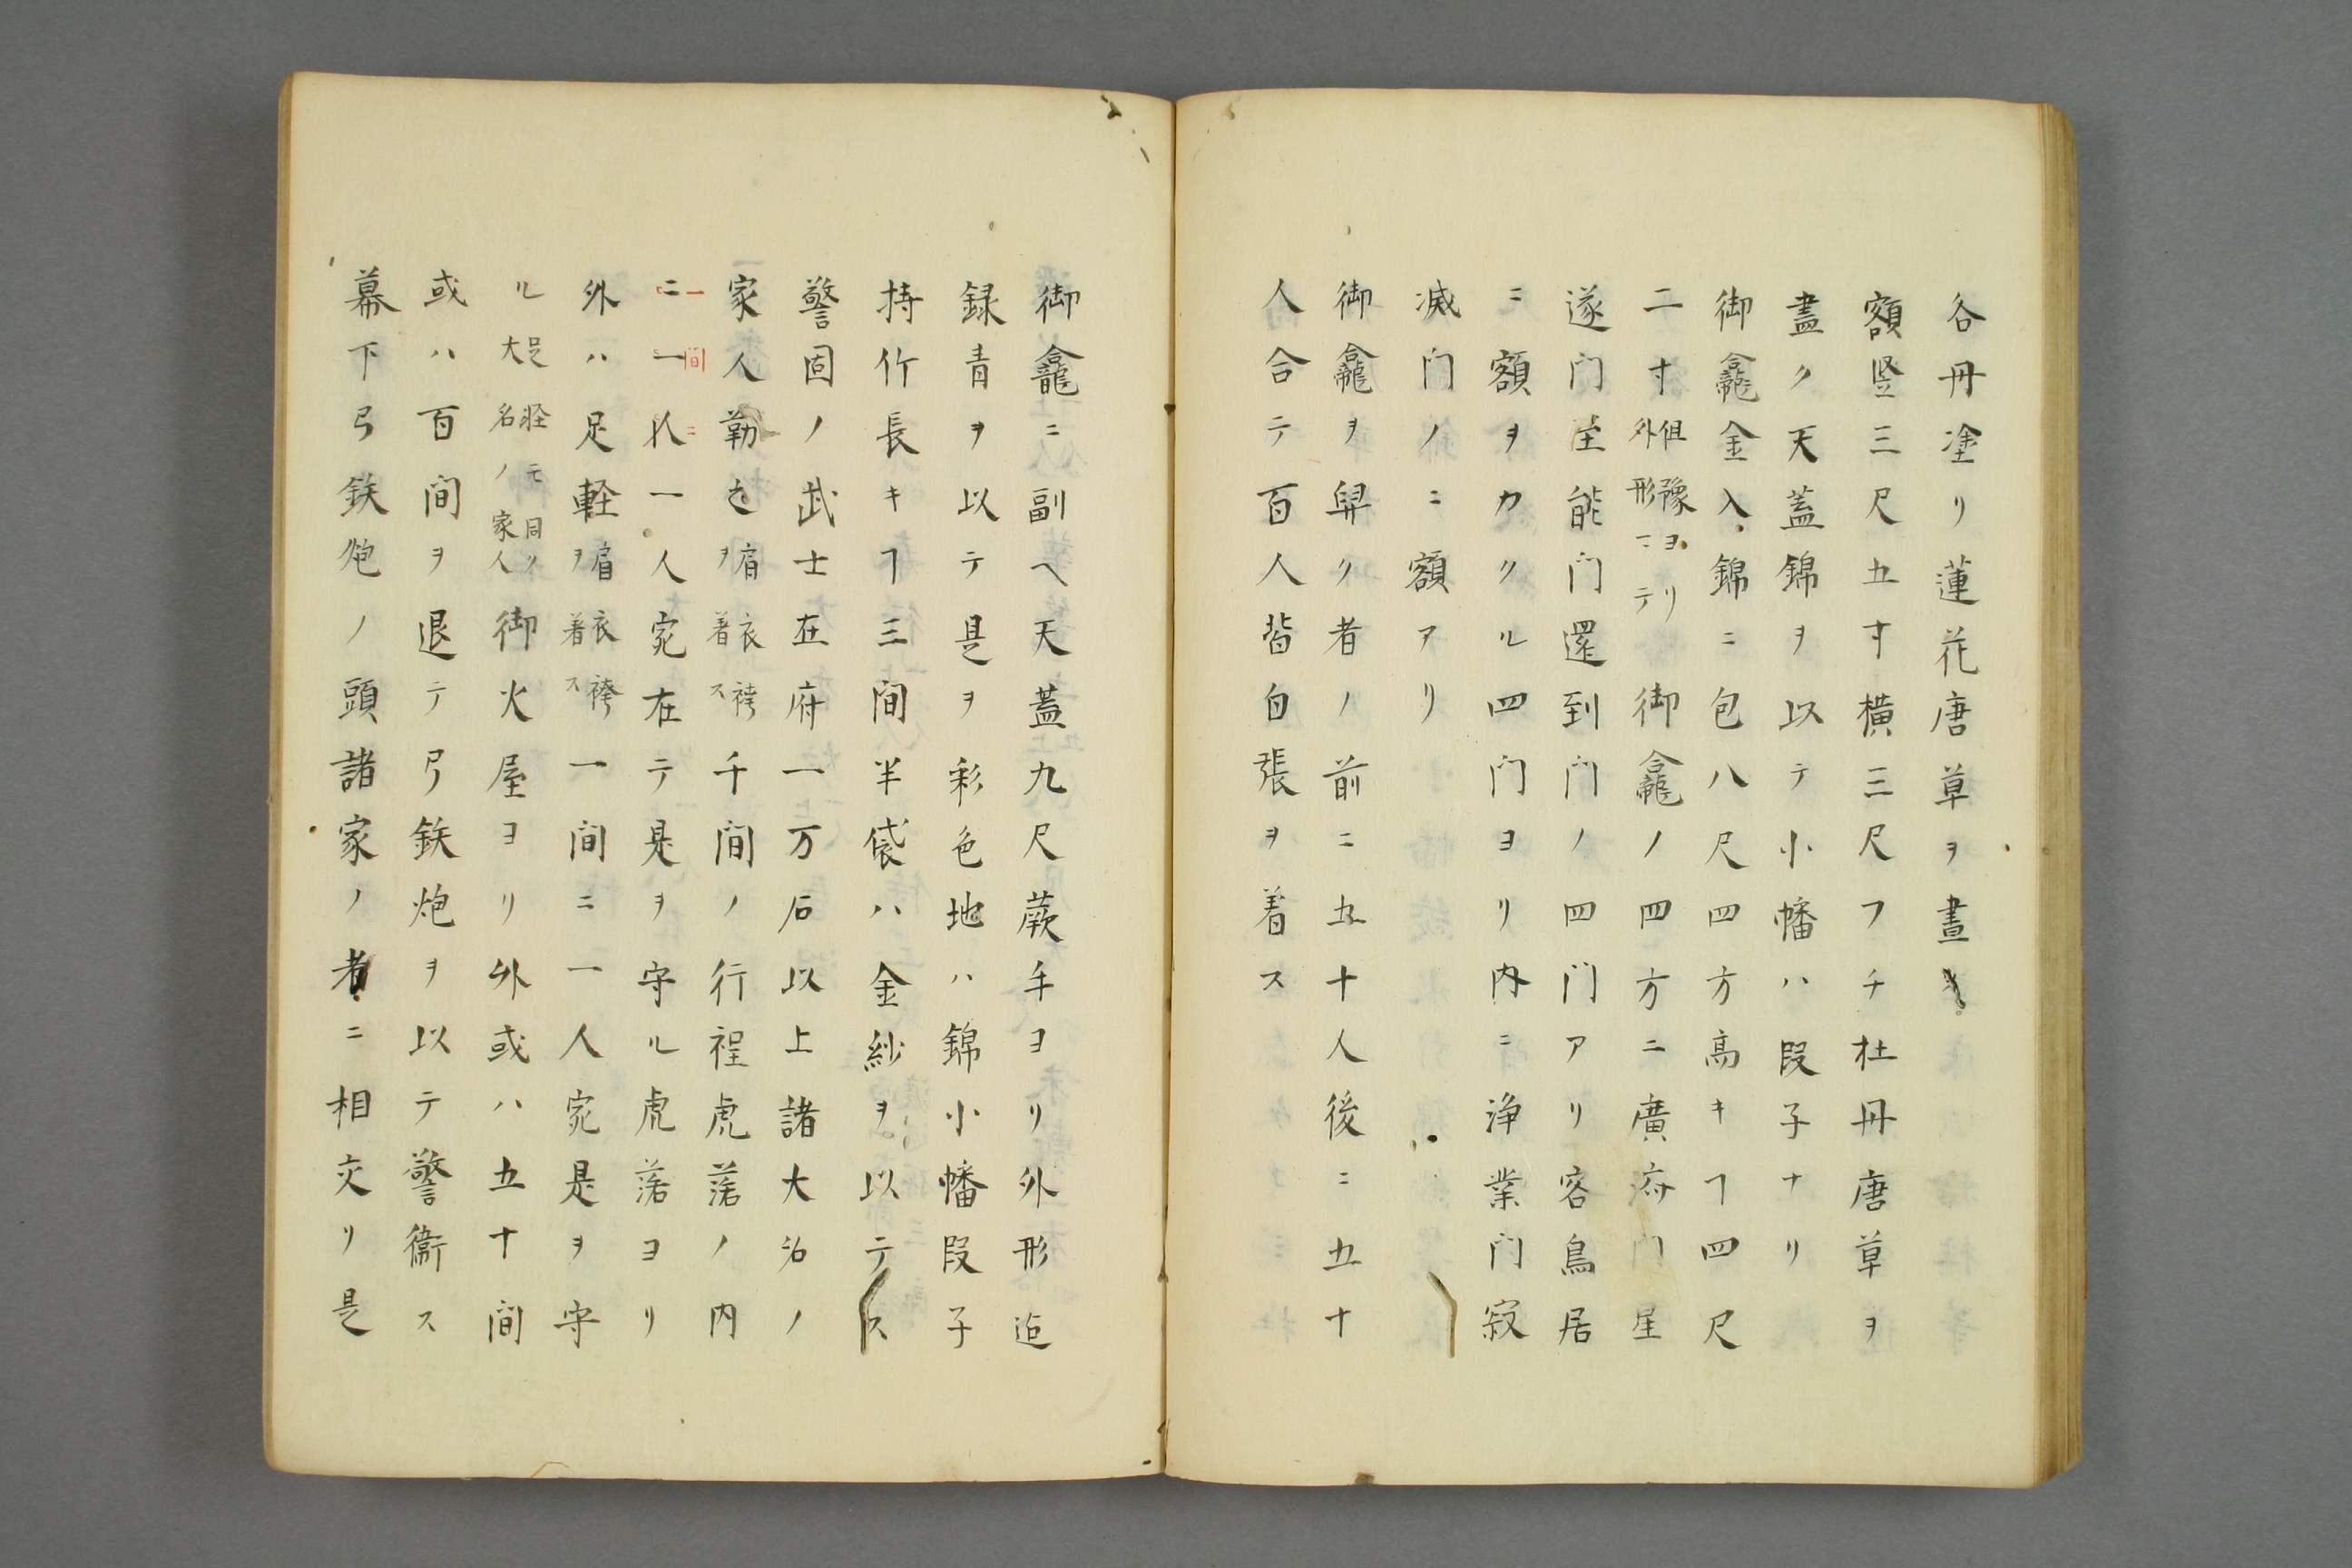 各丹塗リ蓮花唐草ヲ畫ク
額竪三尺五寸横三尺フチ杜丹唐草ヲ
畫ク天蓋錦ヲ以テ小幡ハ段子ナリ
御龕金入錦ニ包八尺四方高キヿ四尺
二寸但豫ヨリ外形ニテ御龕ノ四方ニ廣府門星
遂门涅能门還到门ノ四门アリ容鳥居
ニ額ヲカクル四门ヨリ内ニ浄業门寂
滅门ノニ額アリ
御龕ヲ舁ク者ノ前ニ五十人後ニ五十
人合テ百人皆白張ヲ着ス
御龕ニ副ヘ天蓋九尺蕨手ヨリ外形迠
録青ヲ以テ是ヲ彩色地ハ錦小幡段子
持竹長キヿ三间半袋ハ金紗ヲ以テス
警固ノ武士在府一万石以上諸大名ノ
家人勤之肩衣袴ヲ着ス千间ノ行程虎落ノ内
一间ニ
ニ一人一人宛在テ是ヲ守ル虎落ヨリ
外ハ足軽肩衣袴ヲ着ス一间ニ一人宛是ヲ守
ル足軽モ同ク大名ノ家人御火屋ヨリ外或ハ五十间
或ハ百间ヲ退テ弓鉄炮ヲ以テ警衞ス
幕下弓鉄炮ノ頭諸家ノ者ニ相交リ是